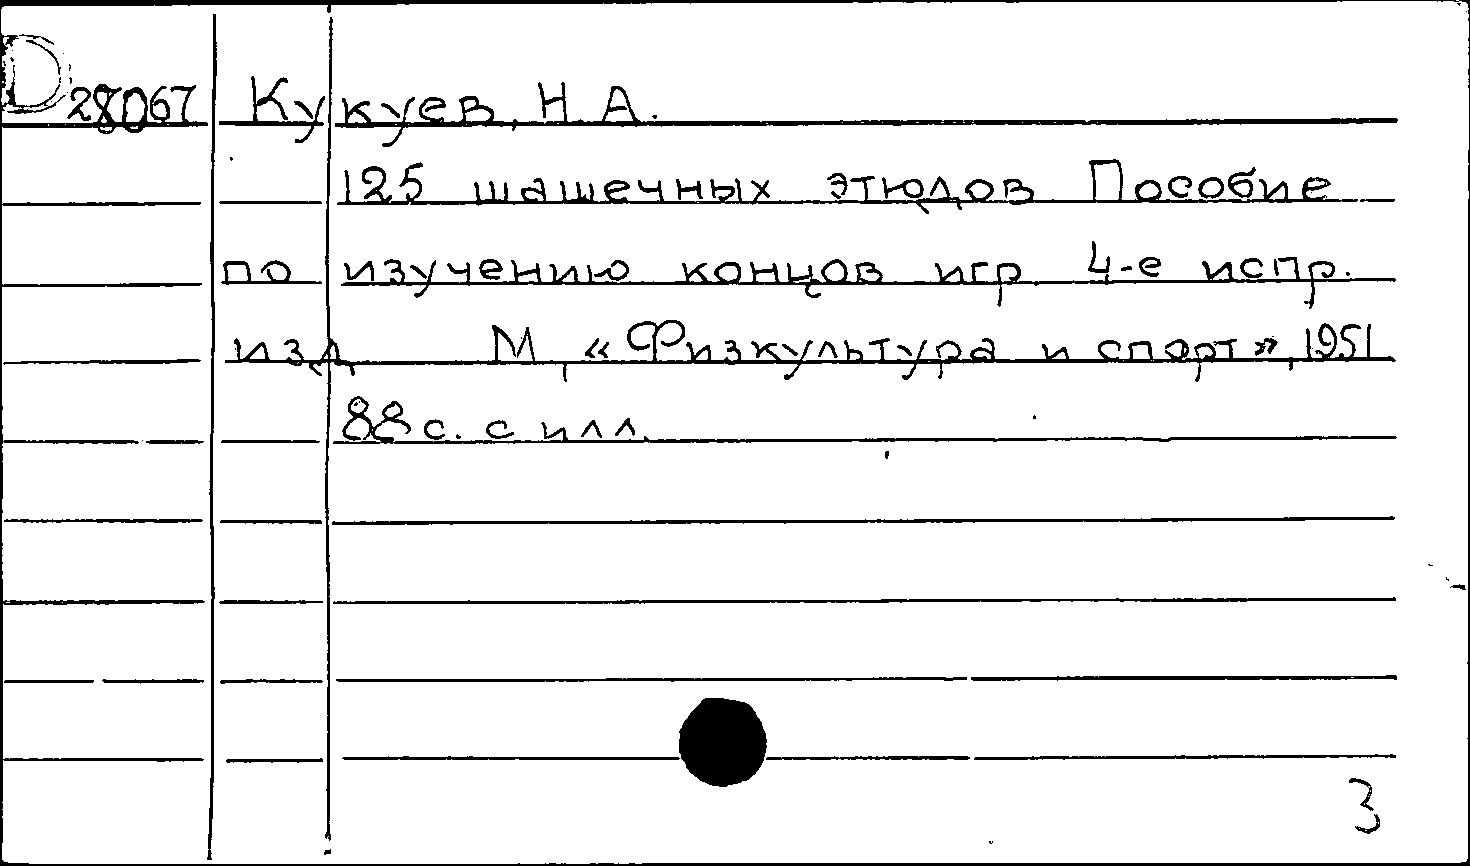 D 28067 Кукуев, Н. А.
125 шашечных этюдов Пособие
по изучению концов игр 4-е испр.
изд М, «Физкультура и спорт», 1951
88 с. с илл.
3